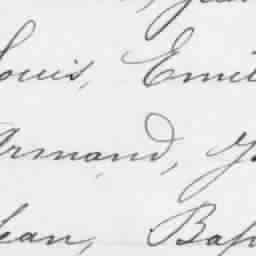 Louis, Emil
Armand,
Jean, Bap